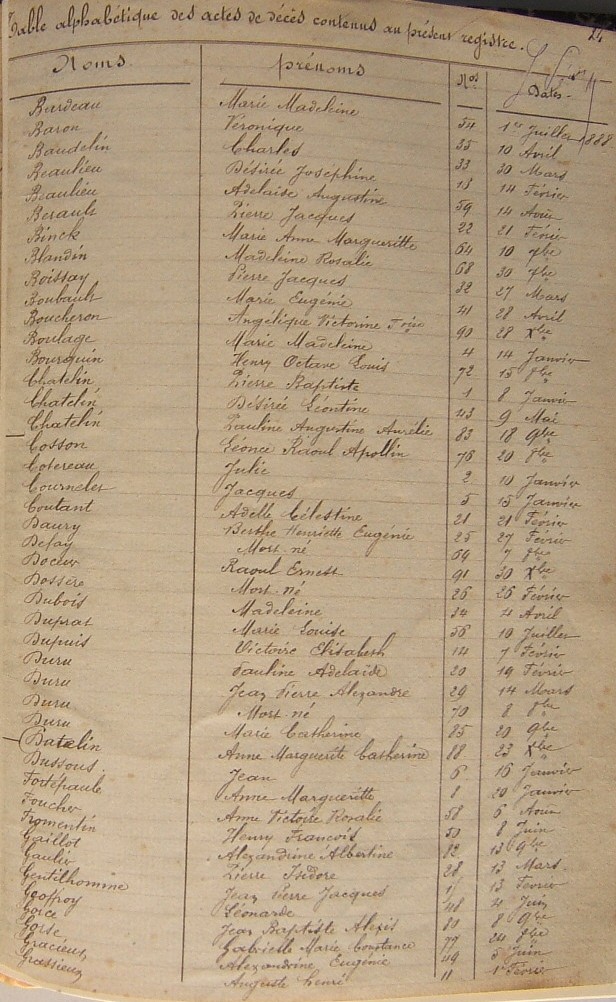 Table alphabétique des actes de décès contenus au présent registre.
24
Noms prénoms Nos Dates
1888
Bardeau Marie Madeleine 54 1er Juillet
Baron Véronique 35 10 Avril
Baudelin Charles 33 30 Mars
Beaulieu Désirée Joséphine 13 14 Février
Beaulieu Adelaide Augustine 59 14 Août
Berault Pierre Jacques 22 21 Février
Binck Marie Anne Margueritte 64 10 9bre
Blandin Madeleine Rosalie 68 30 9bre
Boissay Pierre Jacques 32 27 Mars
Boubault Marie Eugénie 41 28 Avril
Boucheron Angélique Victorine 90 28 Xbre
Boulage Marie Madeleine 4 14 Janvier
Bourquin Henry Octave Louis 72 15 8bre
Chatelin Pierre Baptiste 1 8 Janvier
Chatelin Désirée Léontine 43 9 Mai
Chatelin Pauline Augustine Aurélie 83 18 9bre
Cosson Léonce Raoul Apollin 76 20 8bre
Cotereau Julie 2 10 Janvier
Cournelet Jacques 5 15 Janvier
Coutant Adelle Célestine 21 21 Février
Daury Berthe Henriette Eugénie 25 27 Février
Defay Mort-né 69 7 8bre
Raoul Ernest 91 30 Xbre
Dossère Mort-né 26 26 Février
Dubois Madeleine 34 4 Avril
Duprat Marie Louise 56 10 Juillet
Dupuis Victoire Elisabeth 14 7 Février
Duru Pauline Adelaide 20 19 Février
Duru Jean Pierre Alexandre 29 14 Mars
Duru Mort-né 70 8 8bre
Duru Marie Catherine 85 20 9bre
Batelin Anne Marguerite Catherine 88 23 Xbre
Dussous Jean 6 16 Janvier
Fortépaule Anne Margueritte 8 20 Janvier
Foucher Anne Victoire Rosalie 58 6 Août
Fromentin Henry Francois 50 8 Juin
Gaillot Alexandrine Albertine 82 13 9bre
Gaulier Pierre Isidore 28 13 Mars
Gentilhomme Jean Pierre Jacques 13 Février
Geoffroy Léonarde 48 4 Juin
Gorce Jean Baptiste Alexis 80 8 9bre
Gorse Gabrielle Marie Constance 77 24 8bre
Gracieux Alexandrine Eugénie 49 5 Juin
Auguste Henri 11 1er Février